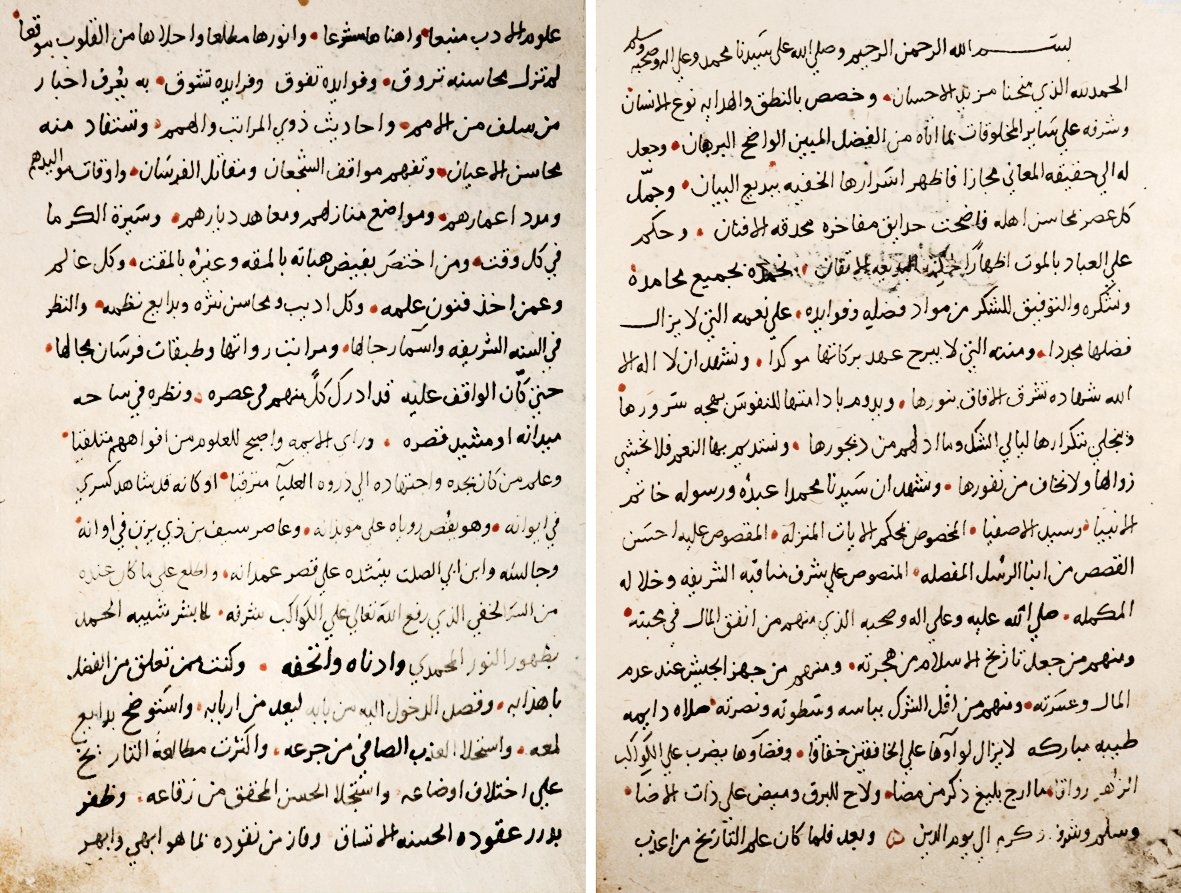 بسم الله الرحمن الرحيم وصلى الله على سيدنا محمد وعلى اله وصحبه وسلم
الحمد لله الذي منحنا مزيد الاحسان وخصص بالنطق والهدايه نوع الانسان
وشرفه على ساير المخلوقات بما اتاه من الفضل المبين الواضح البرهان وجعل
له الي حقيقه المعاني مجازا فاظهر اسرارها الخفيه ببديع البيان وجمّل
كل عصر بمحاسن اهله فاضحت حدايق مفاخره محدقه الافنان وحكم
على العباد بالموت اظهاراً لحكمته الاتقان نحمده بجميع محامده
ونشكره والتوفيق للشكر من مواد فضله وفوايده على نعمه التي لا يزال
فضلها مجددا ومننه التي لا يبرح عهد بركاتها موكدا ونشهد ان لا اله الا
الله شهاده تشرق الافاق بنورها ويدوم بادامتها للنفوس بهجه سرورها
وينجلي بتكرارها ليالي الشك وما ادلهم من ديجورها ونستديم بها النعم فلا نخشى
زوالها ولا نخاف من نفورها ونشهد ان سيدنا محمدا عبده ورسوله خاتم
الانبيا وسيد الاصفيا المخصوص بمحكم الايات المنزله المقصوص عليه احسن
القصص من انبا الرسل المفصله المنصوص على شرف مناقبه الشريفه وخلاله
المكمله صلى الله عليه وعلى اله وصحبه الذي منهم من انفق المال في محبته
ومنهم من جعل تاريخ الاسلام من هجرته ومنهم من جهز الجيش عند عدم
المال وعسرته ومنهم من اقل الشرك بباسه وسطوته ونصرته صلاه دايمه
طيبه مباركه لا يزال لواوها على الخافقين خفاقا وفضاوها يضرب على الكواكب
الزهر رواقا ما ارخ بليغ ذكر من مضا ولاح للبرق وميض على ذات الاضا
وسلم وشرف وكرم الى يوم الدين وبعد فلما كان علم التاريخ من اعذب
علوم الادب منبعا واهناها مشرعا وانورها مطلعا واحلاها من القلوب موقعا
لم تزل محاسنه تروق وفوايده تفوق وفرايده تشوق به يعرف اخبار
من سلف من الامم واحاديث ذوي المراتب والهمم وتستفاد منه
محاسن الاعيان وتفهم مواقف الشجعان ومقاتل الفرسان واوقات مواليدهم
ومدد اعمارهم ومواضع منازلهم ومعاهد ديارهم وسيرة الكرما
في كل وقت ومن اختص بفيض هباته بالمقه وغيره بالمقت وكل عالم
وعمن اخذ فنون علمه وكل اديب ومحاسن نثره وبدايع نظمه والنظر
في السنه الشريفه واسما رجالها ومراتب رواتها وطبقات فرسان مجالها
حتى كان الواقف عليه قد ادرك كلا منهم في عصره ونظره في ساحه
ميدانه او مشيد قصره وراى الايمه واضح للعلوم من افواههم متلقيا
وعلم من كان بجده واجتهاده الى ذروه العليآ مترقيا او كانه قد شاهد كسرى
في ايوانه وهو يقص روياه على موبذانه وعاصر سيف بن ذي يزن في اوانه
وجالسه وابن ابي الصلت ينشده على قصر غمدانه واطلع على ما كان عنده
من السر الخفي الذي رفع الله تعالى على الكواكب شرفه لما بشر شيبه الحمد
بظهور النور المحمدي وادناه واتحفه وكنت ممن تعلق من الفضل
باهدابه وقصد الدخول اليه من بابه ليعد من اربابه واستوضح بدايع
لمعه واستحلا العذب الصافي من جرعه واكثرت مطالعة التاريخ
على اختلاف اوضاعه واستجلا الحسن المحقق من رقاعه وظفر
بدرر عقوده الحسنه الاتساق وفاز من نقوده بما هو ابهى وابهر